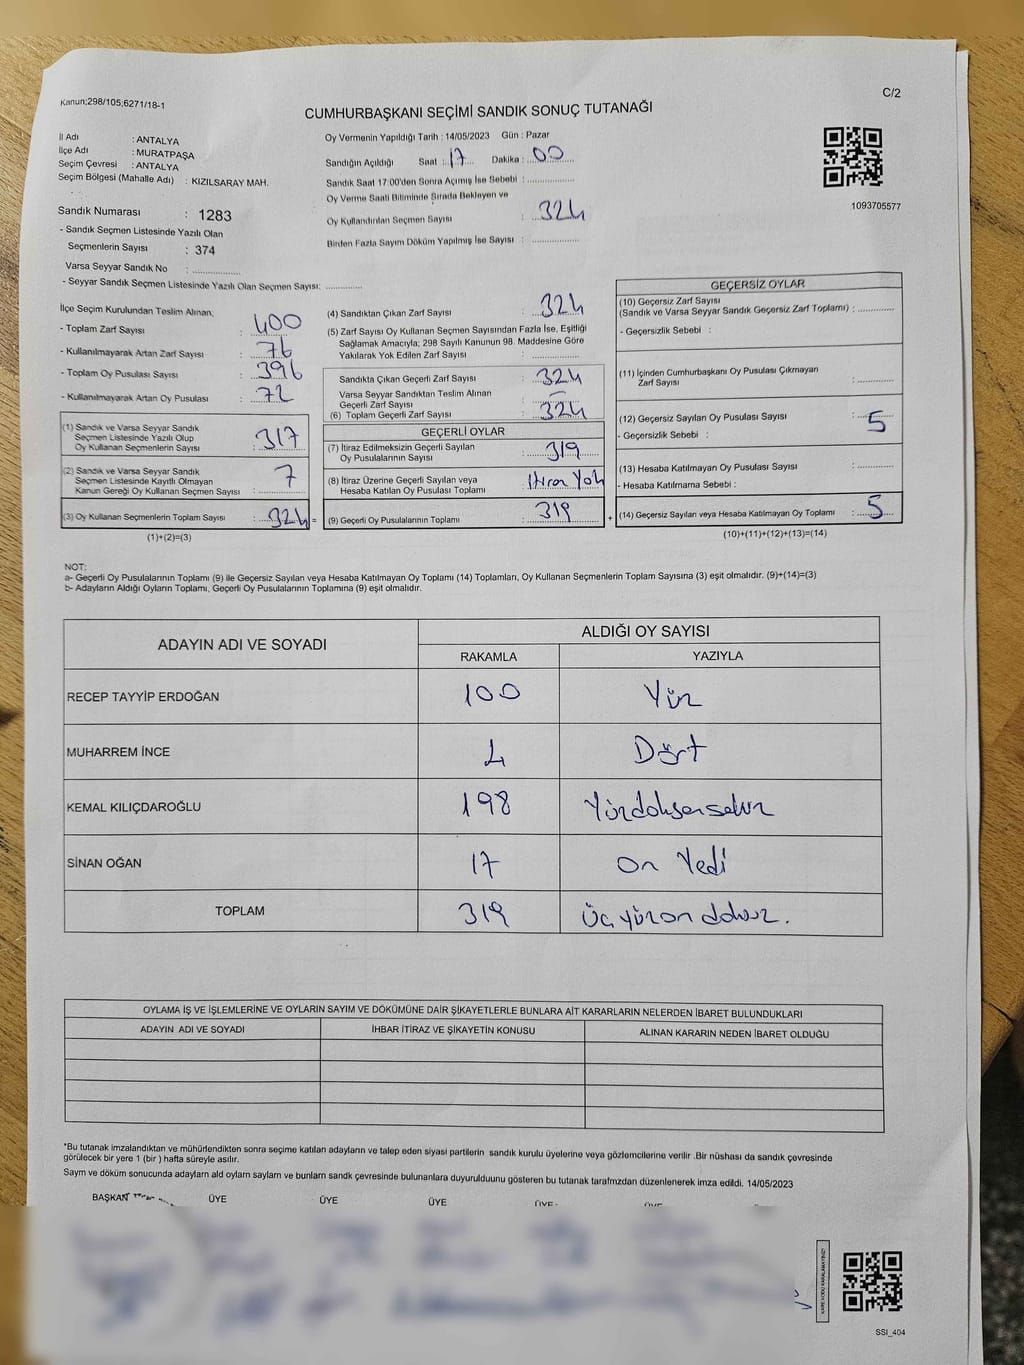 Kanun;298/105;6271/18-1
C/2
CUMHURBAŞKANI SEÇİMİ SANDIK SONUÇ TUTANAĞI
İl Adı : ANTALYA
İlçe Adı : MURATPAŞA
Seçim Çevresi : ANTALYA
Seçim Bölgesi (Mahalle Adı) : KIZILSARAY MAH.
Sandık Numarası : 1283
- Sandık Seçmen Listesinde Yazılı Olan
Seçmenlerin Sayısı : 374
Varsa Seyyar Sandık No : ..............
- Seyyar Sandık Seçmen Listesinde Yazılı Olan Seçmen Sayısı: ............
Oy Vermenin Yapıldığı Tarih : 14/05/2023 Gün : Pazar
Sandığın Açıldığı Saat : 17 Dakika : 00
Sandık Saat 17:00'den Sonra Açımış İse Sebebi : ..............
Oy Verme Saati Bitiminde Sırada Bekleyen ve
Oy Kullandırılan Seçmen Sayısı : 324
Birden Fazla Sayım Döküm Yapılmış İse Sayısı : ..............
1093705577
İlçe Seçim Kurulundan Teslim Alınan;
- Toplam Zarf Sayısı : 400
- Kullanılmayarak Artan Zarf Sayısı : 76
- Toplam Oy Pusulası Sayısı : 396
- Kullanılmayarak Artan Oy Pusulası : 72
(1) Sandık ve Varsa Seyyar Sandık
Seçmen Listesinde Yazılı Olup
Oy Kullanan Seçmenlerin Sayısı : 317
(2) Sandık ve Varsa Seyyar Sandık
Seçmen Listesinde Kayıtlı Olmayan
Kanun Gereği Oy Kullanan Seçmen Sayısı : 7
(3) Oy Kullanan Seçmenlerin Toplam Sayısı : 324 =
(1)+(2)=(3)
(4) Sandıktan Çıkan Zarf Sayısı : 324
(5) Zarf Sayısı Oy Kullanan Seçmen Sayısından Fazla İse, Eşitliği
Sağlamak Amacıyla; 298 Sayılı Kanunun 98. Maddesine Göre
Yakılarak Yok Edilen Zarf Sayısı : ..............
Sandıkta Çıkan Geçerli Zarf Sayısı : 324
Varsa Seyyar Sandıktan Teslim Alınan
Geçerli Zarf Sayısı : –
(6) Toplam Geçerli Zarf Sayısı : 324
GEÇERLİ OYLAR
(7) İtiraz Edilmeksizin Geçerli Sayılan
Oy Pusulalarının Sayısı : 319
(8) İtiraz Üzerine Geçerli Sayılan veya
Hesaba Katılan Oy Pusulası Toplamı : İtiraz Yok
(9) Geçerli Oy Pusulalarının Toplamı : 319 +
GEÇERSİZ OYLAR
(10) Geçersiz Zarf Sayısı
(Sandık ve Varsa Seyyar Sandık Geçersiz Zarf Toplamı) : ............
- Geçersizlik Sebebi :
(11) İçinden Cumhurbaşkanı Oy Pusulası Çıkmayan
Zarf Sayısı : ............
(12) Geçersiz Sayılan Oy Pusulası Sayısı : 5
- Geçersizlik Sebebi :
(13) Hesaba Katılmayan Oy Pusulası Sayısı : ............
- Hesaba Katılmama Sebebi :
(14) Geçersiz Sayılan veya Hesaba Katılmayan Oy Toplamı : 5
(10)+(11)+(12)+(13)=(14)
NOT:
a- Geçerli Oy Pusulalarının Toplamı (9) ile Geçersiz Sayılan veya Hesaba Katılmayan Oy Toplamı (14) Toplamları, Oy Kullanan Seçmenlerin Toplam Sayısına (3) eşit olmalıdır. (9)+(14)=(3)
b- Adayların Aldığı Oyların Toplamı, Geçerli Oy Pusulalarının Toplamına (9) eşit olmalıdır.
ADAYIN ADI VE SOYADI
ALDIĞI OY SAYISI
RAKAMLA YAZIYLA
RECEP TAYYİP ERDOĞAN 100 Yüz
MUHARREM İNCE 4 Dört
KEMAL KILIÇDAROĞLU 198 Yüzdoksansekiz
SİNAN OĞAN 17 On Yedi
TOPLAM 319 Üç yüz on dokuz.
OYLAMA İŞ VE İŞLEMLERİNE VE OYLARIN SAYIM VE DÖKÜMÜNE DAİR ŞİKAYETLERLE BUNLARA AİT KARARLARIN NELERDEN İBARET BULUNDUKLARI
ADAYIN ADI VE SOYADI İHBAR İTİRAZ VE ŞİKAYETİN KONUSU ALINAN KARARIN NEDEN İBARET OLDUĞU
*Bu tutanak imzalandıktan ve mühürlendikten sonra seçime katılan adayların ve talep eden siyasi partilerin sandık kurulu üyelerine veya gözlemcilerine verilir .Bir nüshası da sandık çevresinde
görülecek bir yere 1 (bir ) hafta süreyle asılır.
Sayım ve döküm sonucunda adayların ald oyların sayları ve bunların sandık çevresinde bulunanlara duyurulduunu gösteren bu tutanak tarafmzdan düzenlenerek imza edildi. 14/05/2023
BAŞKAN ÜYE ÜYE ÜYE ÜYE ÜYE
KARE KODU KARALAMAYINIZ!
SSI_404